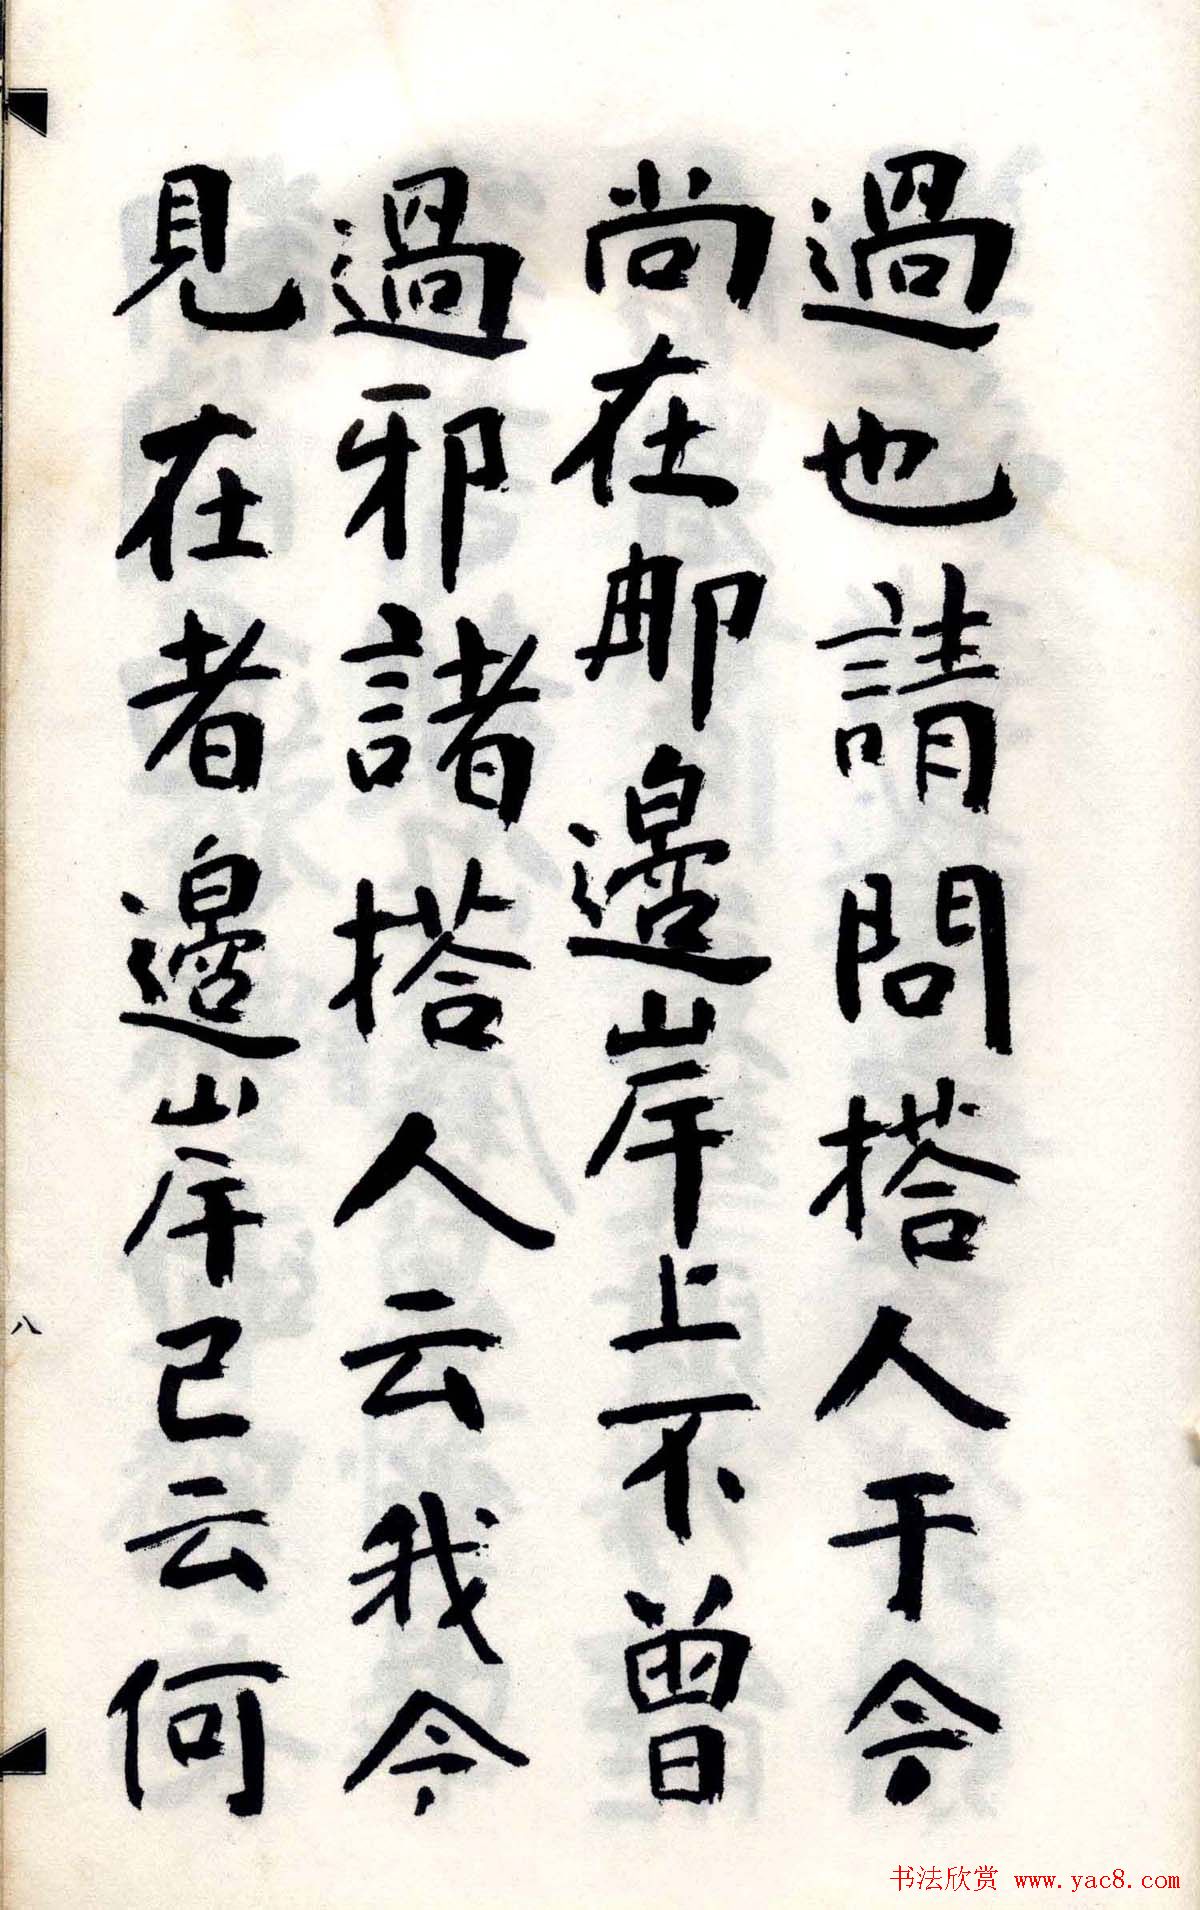 過也請問搭人于今
尚在那邊岸上不曾
過邪諸搭人云我今
見在者邊岸已云何
八
书法欣赏 www.yac8.com